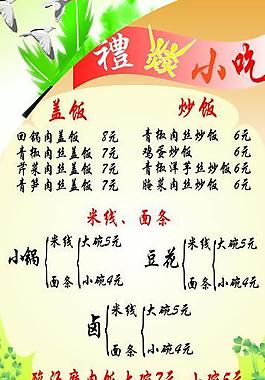 禮燚小吃
盖饭
炒饭
回锅肉盖饭 8元
青椒肉丝炒饭 6元
青椒肉丝盖饭 7元
鸡蛋炒饭 6元
芹菜肉丝盖饭 7元
青椒洋芋丝炒饭 6元
青笋肉丝盖饭 7元
腌菜肉炒饭 6元
米线、面条
小锅 米线 大碗5元
面条 小碗4元
豆花 米线 大碗5元
面条 小碗4元
卤 米线 大碗5元
面条 小碗4元
大碗7元 小碗5元